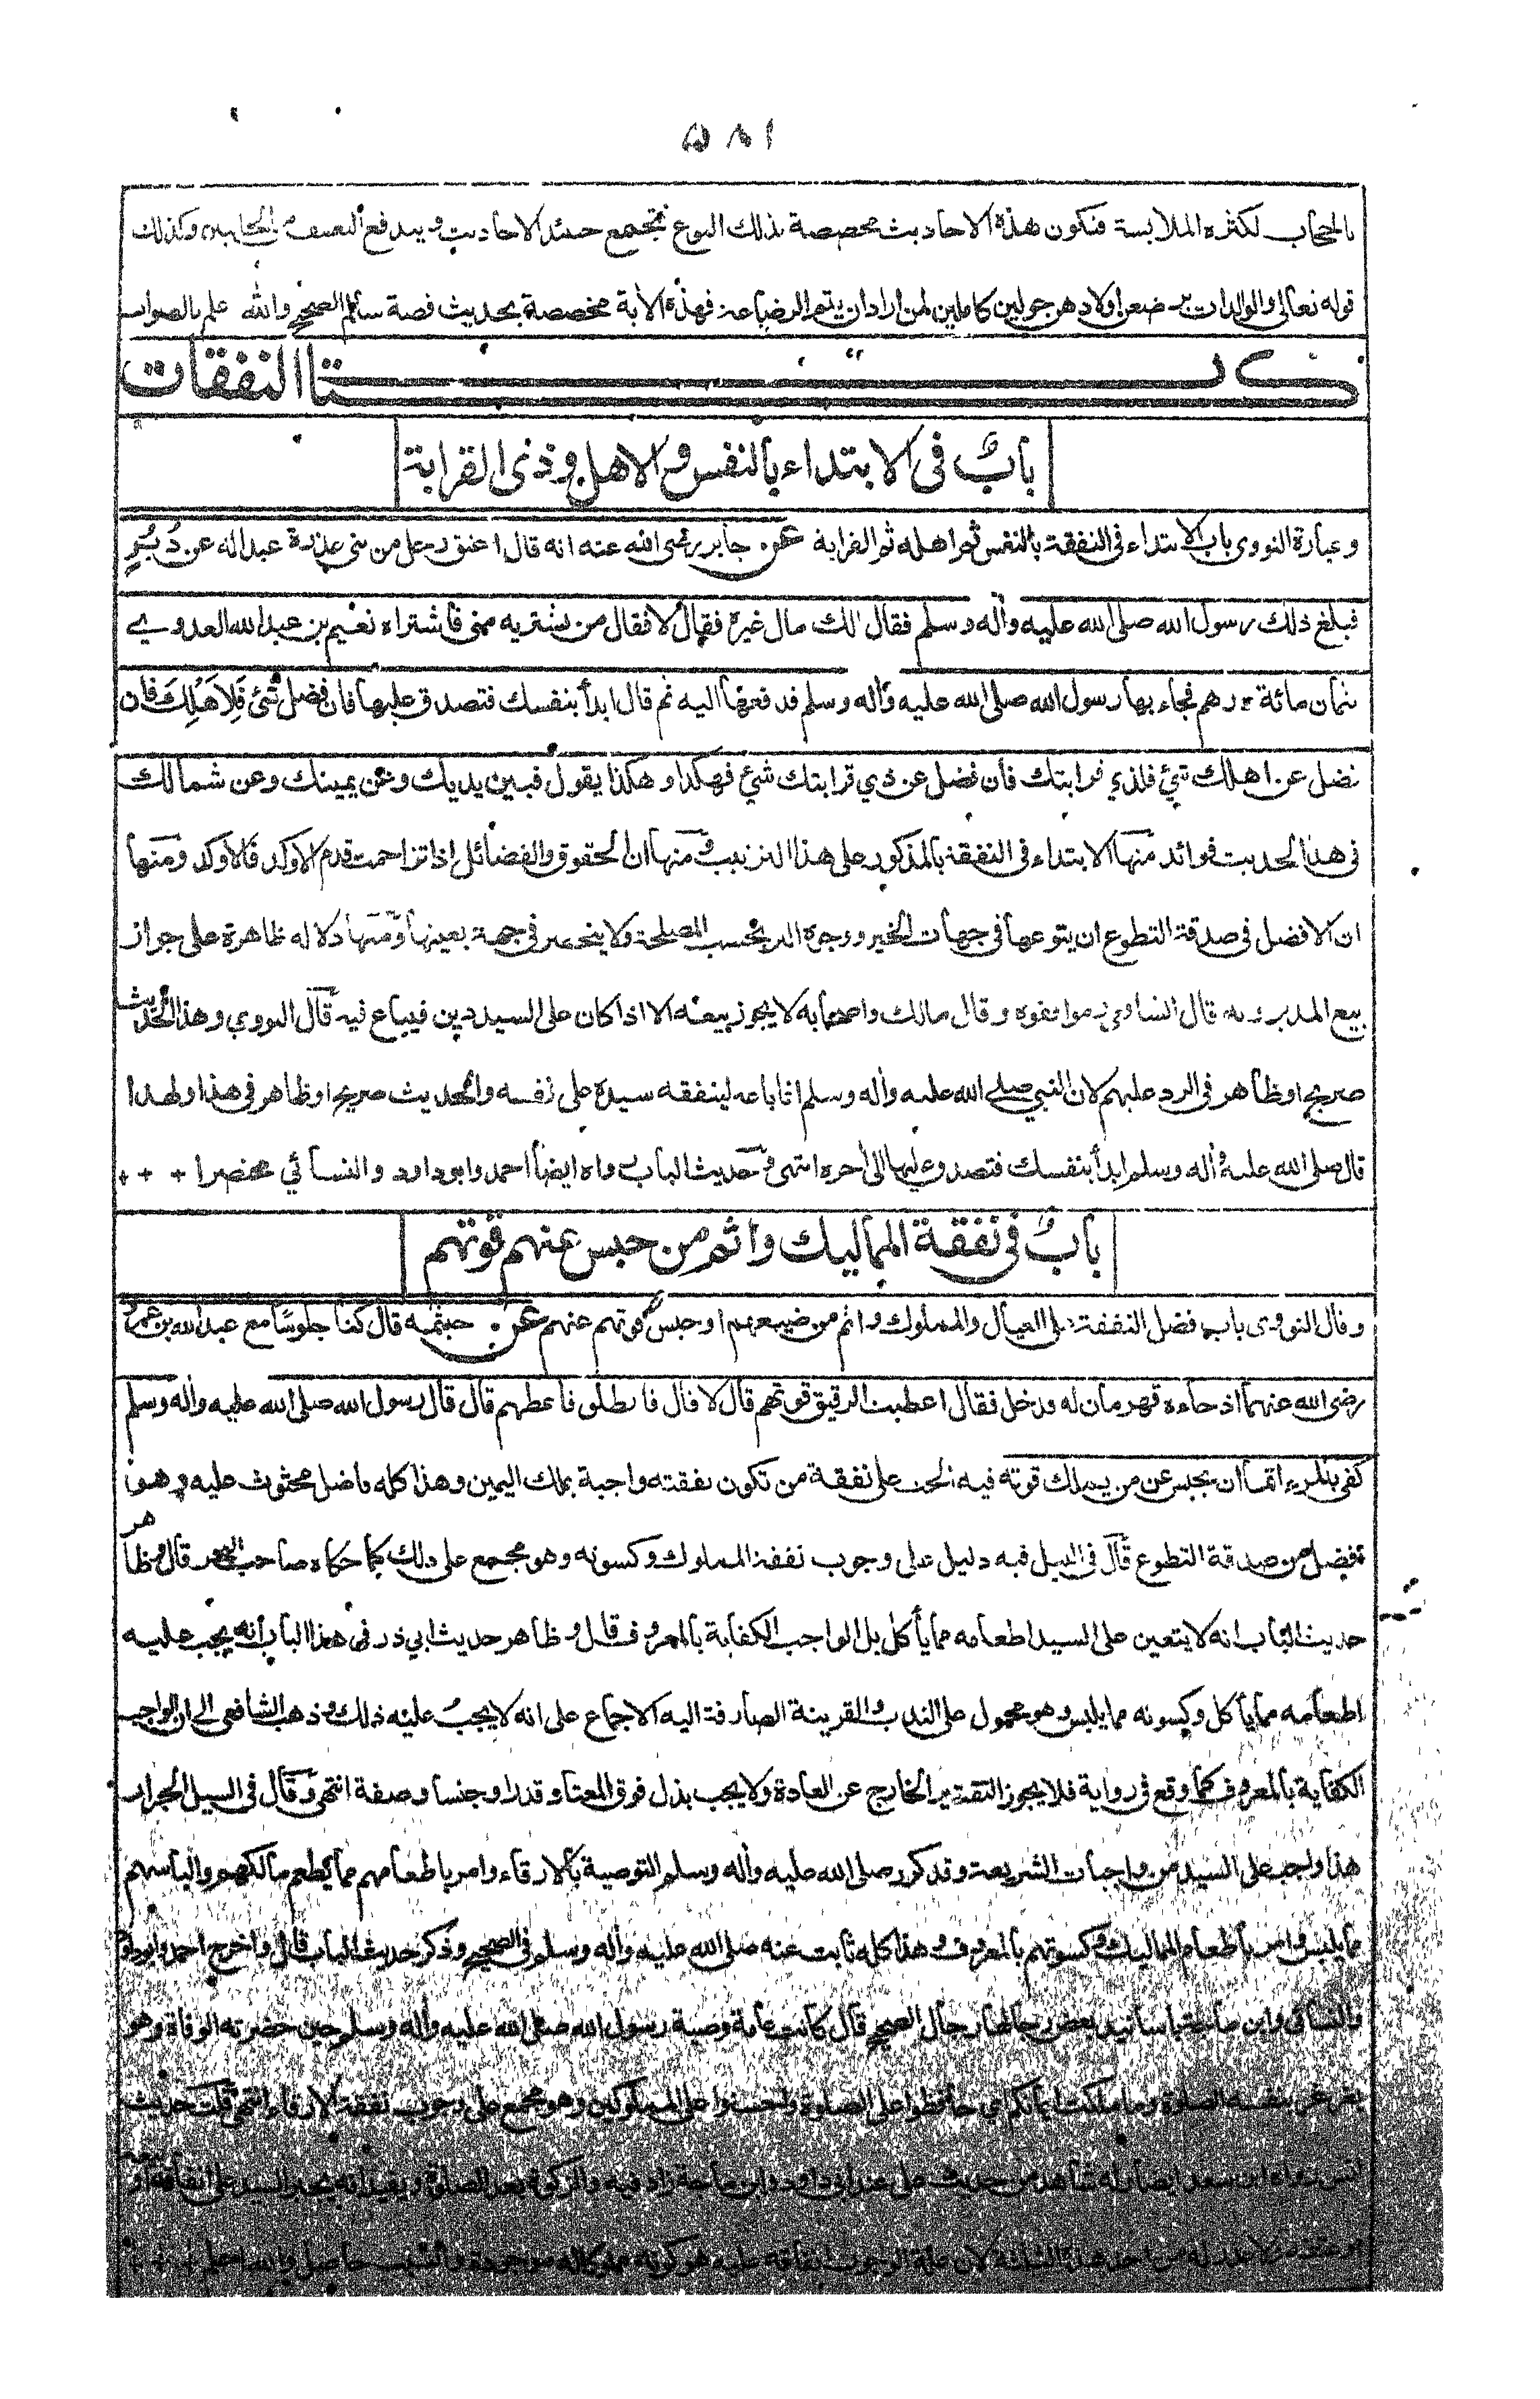 ٥٨١
بالحجاب لكثرة الملابسة فتكون هذه الاحاديث مخصصة بذلك النوع فتجتمع حينئذ الاحاديث ويندفع التعسف من الجانبين وكذلك
قوله تعالى والوالدات يرضعن اولادهن حولين كاملين لمن اراد ان يتم الرضاعة فهذه الاية مخصصة بحديث قصة سالم الصحيح والله علم بالصواب
كتا النفقات
باب فى الابتداء بالنفس والاهل وذى القرابة
وعبارة النووى باب الابتداء فى النفقة بالنفس ثم اهله ثم القرابة عن جابر رضى الله عنه انه قال اعتق رجل من بنى عذرة عبدا له عن دُبُرٍ
فبلغ ذلك رسول الله صلى الله عليه واله وسلم فقال الك مال غيره فقال لا فقال من يشتريه منى فاشتراه نعيم بن عبد الله العدوي
بثمان مائة درهم فجاء بها رسول الله صلى الله عليه واله وسلم فدفعها اليه ثم قال ابدأ بنفسك فتصدق عليها فان فضل شئ فَلِاَهْلِكَ فان
فضل عن اهلك شئ فلذي قرابتك فان فضل عن ذي قرابتك شئ فهكذا وهكذا يقول فبين يديك وعن يمينك وعن شمالك
فى هذا الحديث فوائد منها الابتداء فى النفقة بالمذكور على هذا الترتيب ومنها ان الحقوق والفضائل اذا تزاحمت قدم الاوكد فالاوكد ومنها
ان الافضل فى صدقة التطوع ان ينوعها فى جهات الخير ووجوه البر بحسب المصلحة ولا ينحصر فى جهة بعينها ومنها دلالة ظاهرة على جواز
بيع المدبر وبه قال الشافعي وموافقوه وقال مالك واصحابه لا يجوز بيعه الا اذا كان على السيد دين فيباع فيه قال النووي وهذا الحديث
صريح او ظاهر فى الرد عليهم لان النبي صلى الله عليه واله وسلم انما باعه لينفقه سيده على نفسه والحديث صريح او ظاهر فى هذا ولهذا
قال صلى الله عليه واله وسلم ابدأ بنفسك فتصدق عليها الى اخره انتهى وحديث الباب رواه ايضا احمد وابو داود والنسائي مختصرا + + +
باب فى نفقة المماليك واثم من حبس عنهم قوتهم
وقال النووى باب فضل النفقة على العيال والمملوك واثم من ضيعهم او حبس قوتهم عنهم عن خيثمه قال كنا جلوسا مع عبد الله بن عمرو
رضى الله عنهما اذ جاءه قهرمان له فدخل فقال اعطيت الرقيق قوتهم قال لا قال فانطلق فاعطهم قال قال رسول الله صلى الله عليه واله وسلم
كفى بالمرء اثما ان يحبس عن من يملك قوته فيه الحث على نفقة من تكون نفقته واجبة بملك اليمين وهذا كله فاضل محثوث عليه وهو
افضل من صدقة التطوع قال فى النيل فيه دليل على وجوب نفقة المملوك وكسوته وهو مجمع على ذلك كما حكاه صاحب البحر قال وظاهر
حديث الباب انه لا يتعين على السيد اطعامه مما يأكل بل الواجب الكفاية بالمعروف قال وظاهر حديث ابي ذر فى هذا الباب انه يجب عليه
اطعامه مما يأكل وكسوته مما يلبس وهو محمول على الندب والقرينة الصارفة اليه الاجماع على انه لا يجب عليه ذلك وذهب الشافعى الى ان الواجب
الكفاية بالمعروف كما وقع فى رواية فلا يجوز التقتير الخارج عن العادة ولا يجب بذل فوق المعتاد قدرا وجنسا وصفة انتهى وقال فى السيل الجرار
هذا واجب على السيد من واجبات الشريعة وقد كرر صلى الله عليه واله وسلم التوصية بالارقاء وامر باطعامهم مما يطعم مالكهم والباسهم
مما يلبس وامر باطعام المماليك وكسوتهم بالمعروف وهذا كله ثابت عنه صلى الله عليه واله وسلم فى الصحيح وذكر حديث الباب قال واخرج احمد وابو داود
والنسائى وابن ماجة باسانيد بعض رجالها رجال الصحيح قال كانت عامة وصية رسول الله صلى الله عليه واله وسلم حين حضرته الوفاة وهو
يغرغر بنفسه الصلوة وما ملكت ايمانكم اي حافظوا على الصلوة واحسنوا على المملوكين وهو مجمع على وجوب نفقة الارقاء انتهى قلت حديث
انس رواه ابن سعد ايضا وله شاهد من حديث على عند ابى داود وابن ماجة زاد فيه والزكوة بعد الصلوة ويفيد انه يجبر السيد على انفاقه او